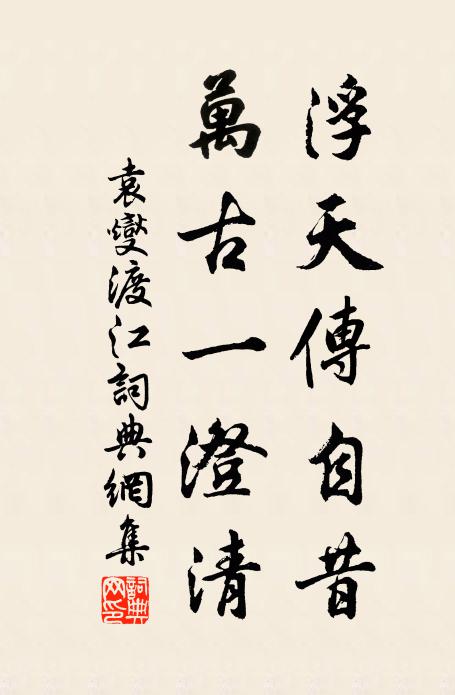 浮天傳自昔
萬古一澄清
袁燮渡江詞典網集
詞典網印